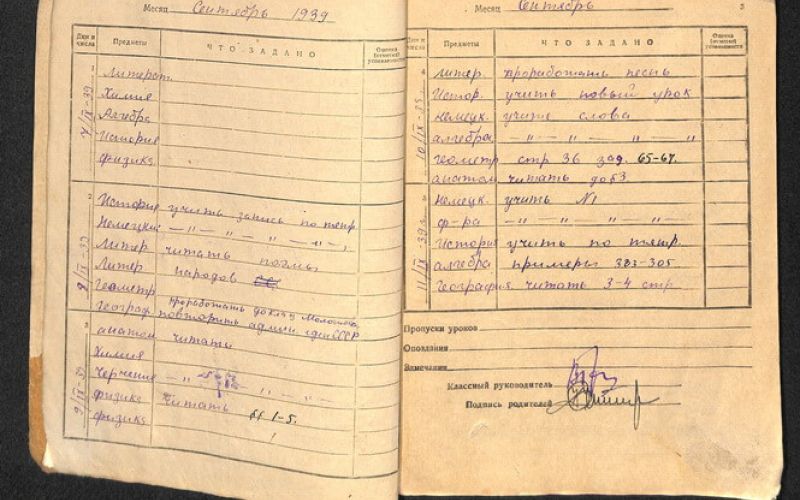 Месяц Сентябрь 1939
Дни и числа Предметы ЧТО ЗАДАНО Оценка (отметка) успеваемости
7/IX-39
1 Литерат.
Химия
Алгебра
История
физика
8/IX-39
2 История учить запись по тетр.
Немецкий — " — " — " — " —
Литер читать поэмы
Литер народов
Геометр
Географ. проработать доклад Молотова
повторить админ. грен СССР
9/IX-39
3 анатом читать
Химия
Черчение — " — " — " —
физика читать §§ 1-5.
физика
Месяц Сентябрь 3
Дни и числа Предметы ЧТО ЗАДАНО Оценка (отметка) успеваемости
10/IX-39.
4 литер. проработать песнь
Истор. учить новый урок
немецк. учить слова
алгебра — " — " — " — "
геометр стр 36 зад. 65-67.
анатом читать до §3
11/IX-39г.
5 немецк. учить №1
ф-ра — " — " — " — " —
История учить по тетр.
алгебра примеры 383-305
География. читать 3-4 стр
Пропуски уроков
Опоздания
Замечания
Классный руководитель
Подпись родителей